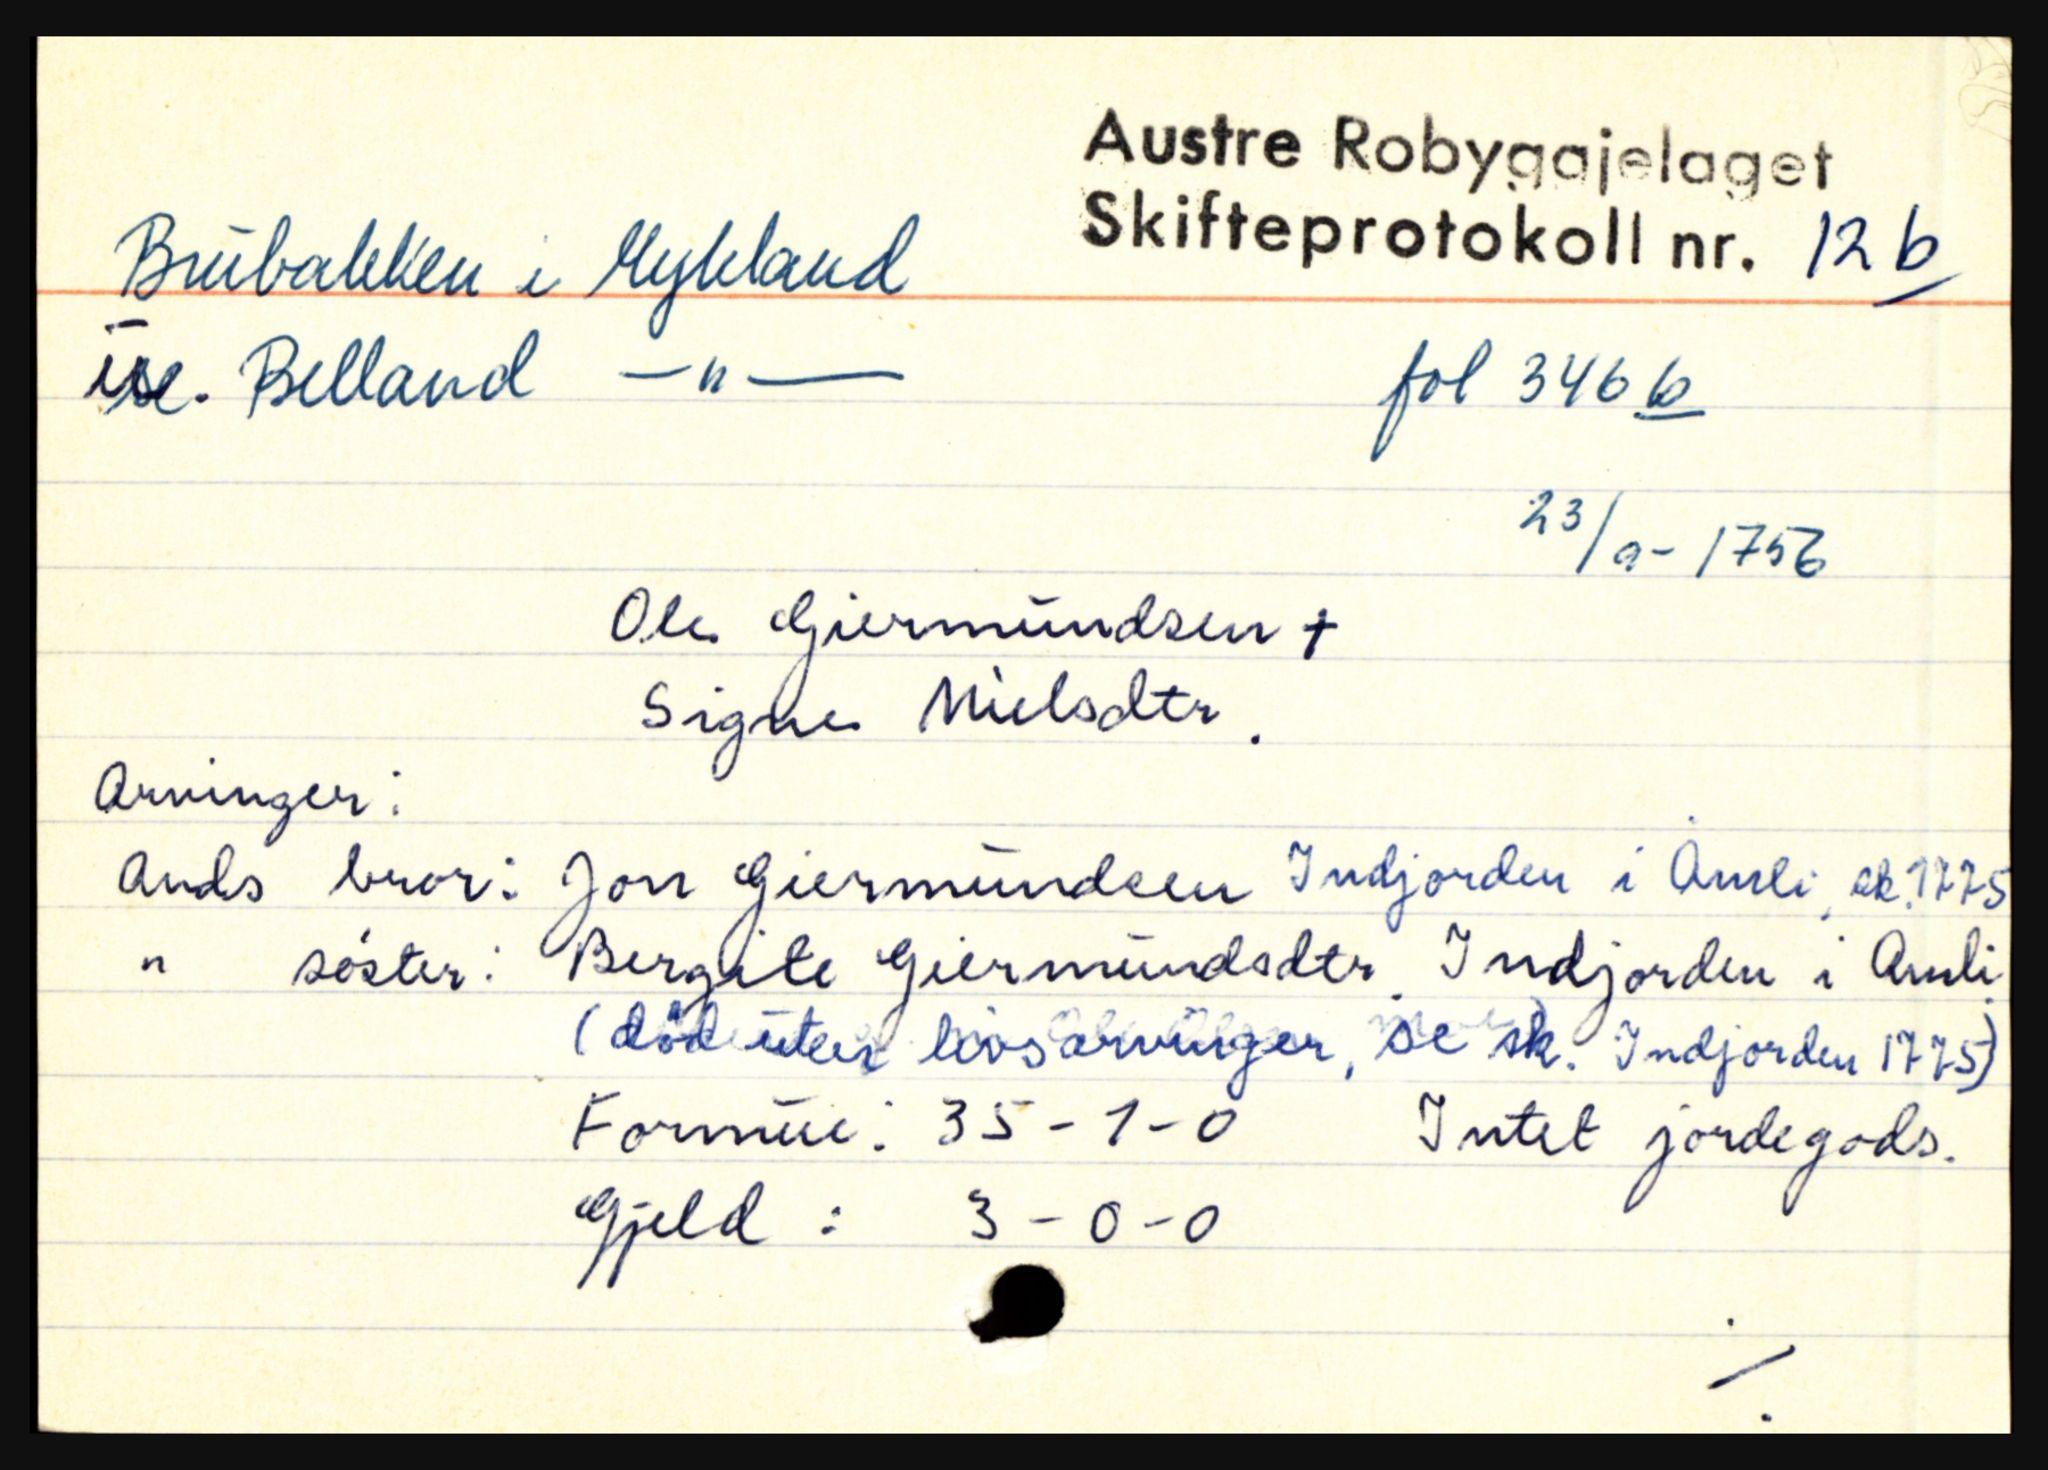 Austre Robyggjelaget
Skifteprotokoll nr. 12 b
Brubakken i Mykland
Belland — " —
fol 346 b
23/9 - 1756
Ole Giermundsen †
Signe Nielsdtr.
Arvinger:
Avds bror: Jon Giermundsen Indjorden i Åmli, sk. 1775
" søster: Bergite Giermundsdtr. Indjorden i Åmli.
(død uten livsarvinger, se sk. Indjorden 1775)
Formue: 35 - 1 - 0 Intet jordegods.
Gjeld : 3 - 0 - 0